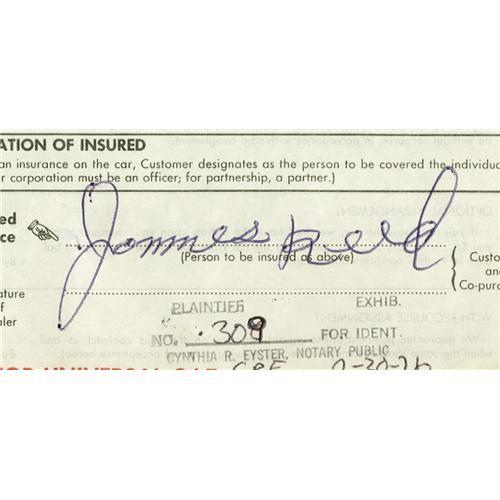 ATION OF INSURED
an insurance on the car, Customer designates as the person to be covered the individu
r corporation must be an officer; for partnership, a partner.)
ed
ce
James Reed
(Person to be insured as above)
Custo
an
Co-purc
ature
f
aler
PLAINTIFF EXHIB.
NO. 309 FOR IDENT.
CYNTHIA R. EYSTER, NOTARY PUBLIC